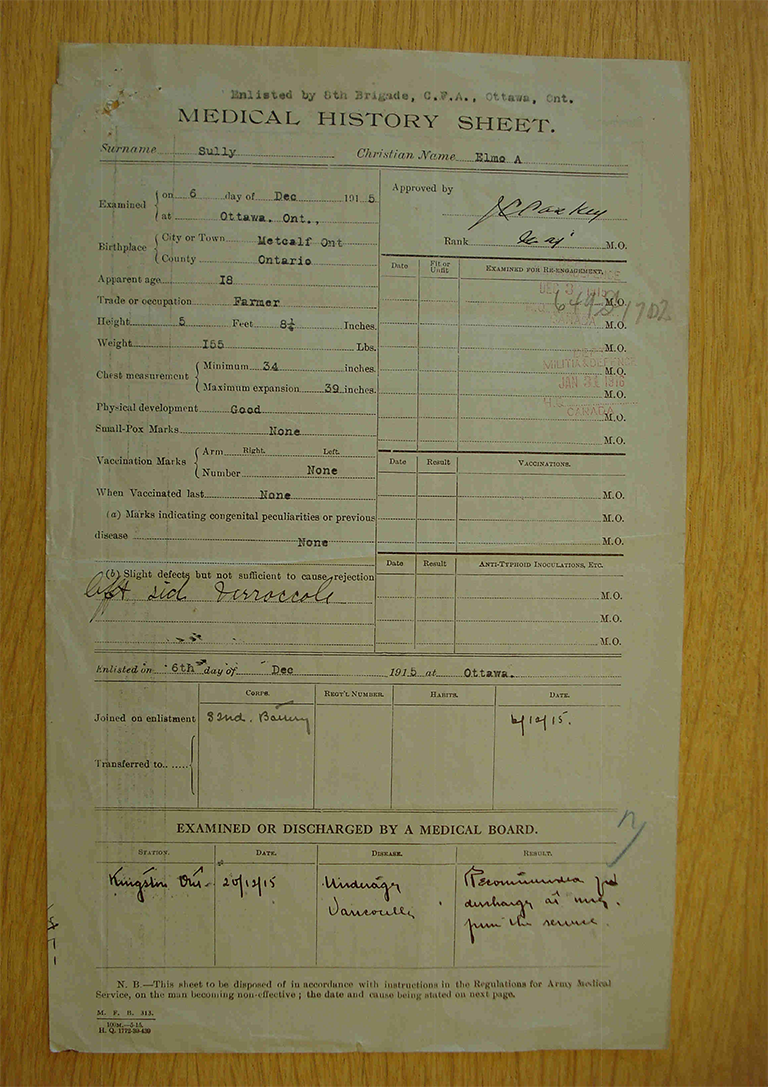 Enlisted by 8th Brigade, C.F.A., Ottawa, Ont.
MEDICAL HISTORY SHEET.
Surname Sully Christian Name Elmo A
Examined on 6 day of Dec 1915
at Ottawa. Ont.,
Birthplace City or Town Metcalf Ont
County Ontario
Apparent age 18
Trade or occupation Farmer
Height 5 Feet 8¼ Inches.
Weight 155 Lbs.
Chest measurement Minimum 34 inches.
Maximum expansion 39 inches.
Physical development Good
Small-Pox Marks None
Vaccination Marks Arm Right. Left.
Number None
When Vaccinated last None
(a) Marks indicating congenital peculiarities or previous
disease None
(b) Slight defects but not sufficient to cause rejection
left sid verroccole
Approved by
Rank Maj M.O.
Date Fit or Unfit EXAMINED FOR RE-ENGAGEMENT.
M.O.
649-S-1702
M.O.
M.O.
MILITIA & DEFENCE
M.O.
JAN 31 1916
M.O.
CANADA
M.O.
M.O.
Date Result VACCINATIONS.
M.O.
M.O.
M.O.
Date Result ANTI-TYPHOID INOCULATIONS, ETC.
M.O.
M.O.
M.O.
Enlisted on 6th day of Dec 1915 at Ottawa.
CORPS. REGT'L NUMBER. HABITS. DATE.
Joined on enlistment 32nd. Battery 6/12/15.
Transferred to
EXAMINED OR DISCHARGED BY A MEDICAL BOARD.
STATION. DATE. DISEASE. RESULT.
Kingston Ont. 20/12/15 Underage Recommended for
discharge as
Varicocele from the service.
N. B.—This sheet to be disposed of in accordance with instructions in the Regulations for Army Medical
Service, on the man becoming non-effective; the date and cause being stated on next page.
M. F. B. 313.
100M.—5-15.
H. Q. 1772-39-439